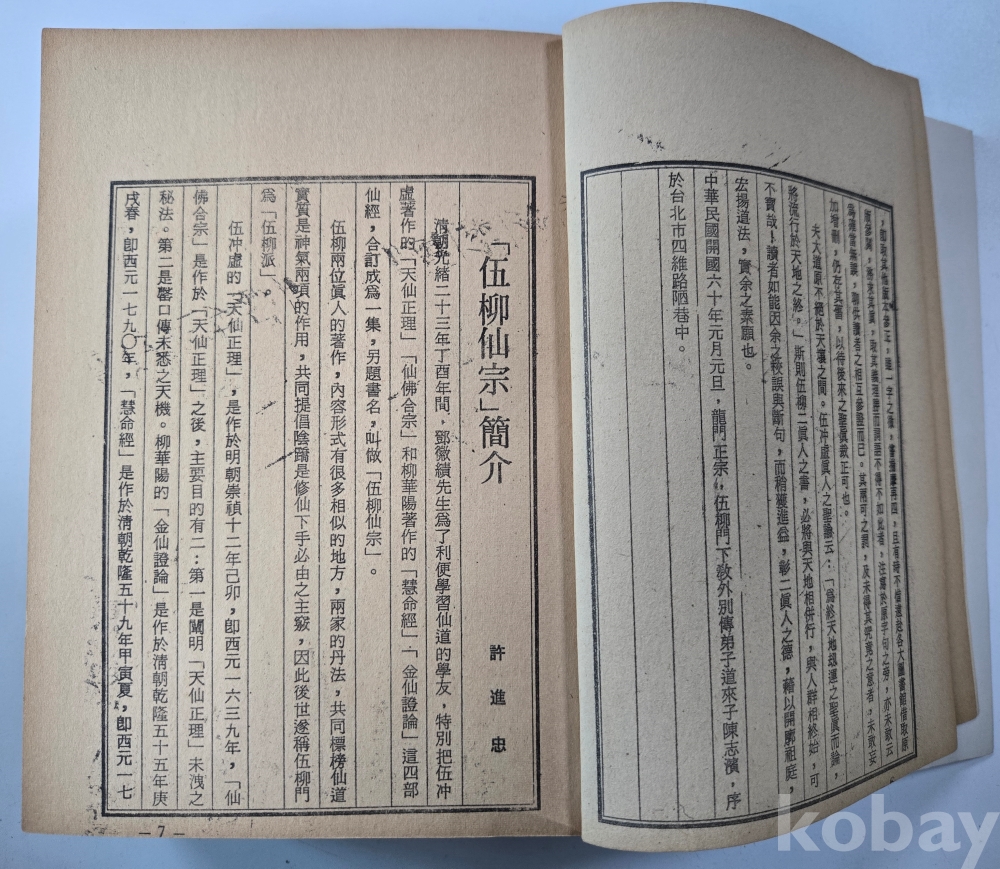 ，即取其他版本參正，雖一字之微，審理再四，且有時不惜遠赴各大圖書館借取原
版參閱，務求其真，取其義理勝而詞語不得不如此者，注寫於原字句之旁，亦未敢云
為確當無誤，聊供讀者之相互參證而已。其兩可之間，及未得其究竟之意者，未敢妄
加增刪，仍存其舊，以待後來之聖眞裁正可也。
夫大道原不絕於天壤之間。伍冲虛眞人之聖讖云：「為終天地劫運之聖眞而論，
將流行於天地之終。」斯則伍柳二眞人之書，必將與天地相併行，與人群相終始，可
不寶哉！讀者如能因余之校誤與斷句，而稍獲進益，彰二眞人之德，藉以開廓祖庭，
宏揚道法，實余之素願也。
中華民國開國六十年元月元旦，龍門正宗，伍柳門下教外別傳弟子道來子陳志濱，序
於台北市四維路陋巷中。
「伍柳仙宗」簡介
許進忠
清朝光緒二十三年丁酉年間，鄧徽績先生爲了利便學習仙道的學友，特別把伍冲
虛著作的「天仙正理」「仙佛合宗」和柳華陽著作的「慧命經」「金仙證論」這四部
仙經，合訂成爲一集，另題書名，叫做「伍柳仙宗」。
伍柳兩位眞人的著作，內容形式有很多相似的地方，兩家的丹法，共同標榜仙道
實質是神氣兩項的作用，共同提倡陰蹻是修仙下手必由之主竅，因此後世遂稱伍柳門
爲「伍柳派」。
伍冲虛的「天仙正理」，是作於明朝崇禎十二年己卯，卽西元一六三九年，「仙
佛合宗」是作於「天仙正理」之後，主要目的有二：第一是闡明「天仙正理」未洩之
秘法。第二是罄口傳未悉之天機。柳華陽的「金仙證論」是作於淸朝乾隆五十五年庚
戌春，卽西元一七九〇年，「慧命經」是作於淸朝乾隆五十九年甲寅夏，卽西元一七
— 7 —
kobay